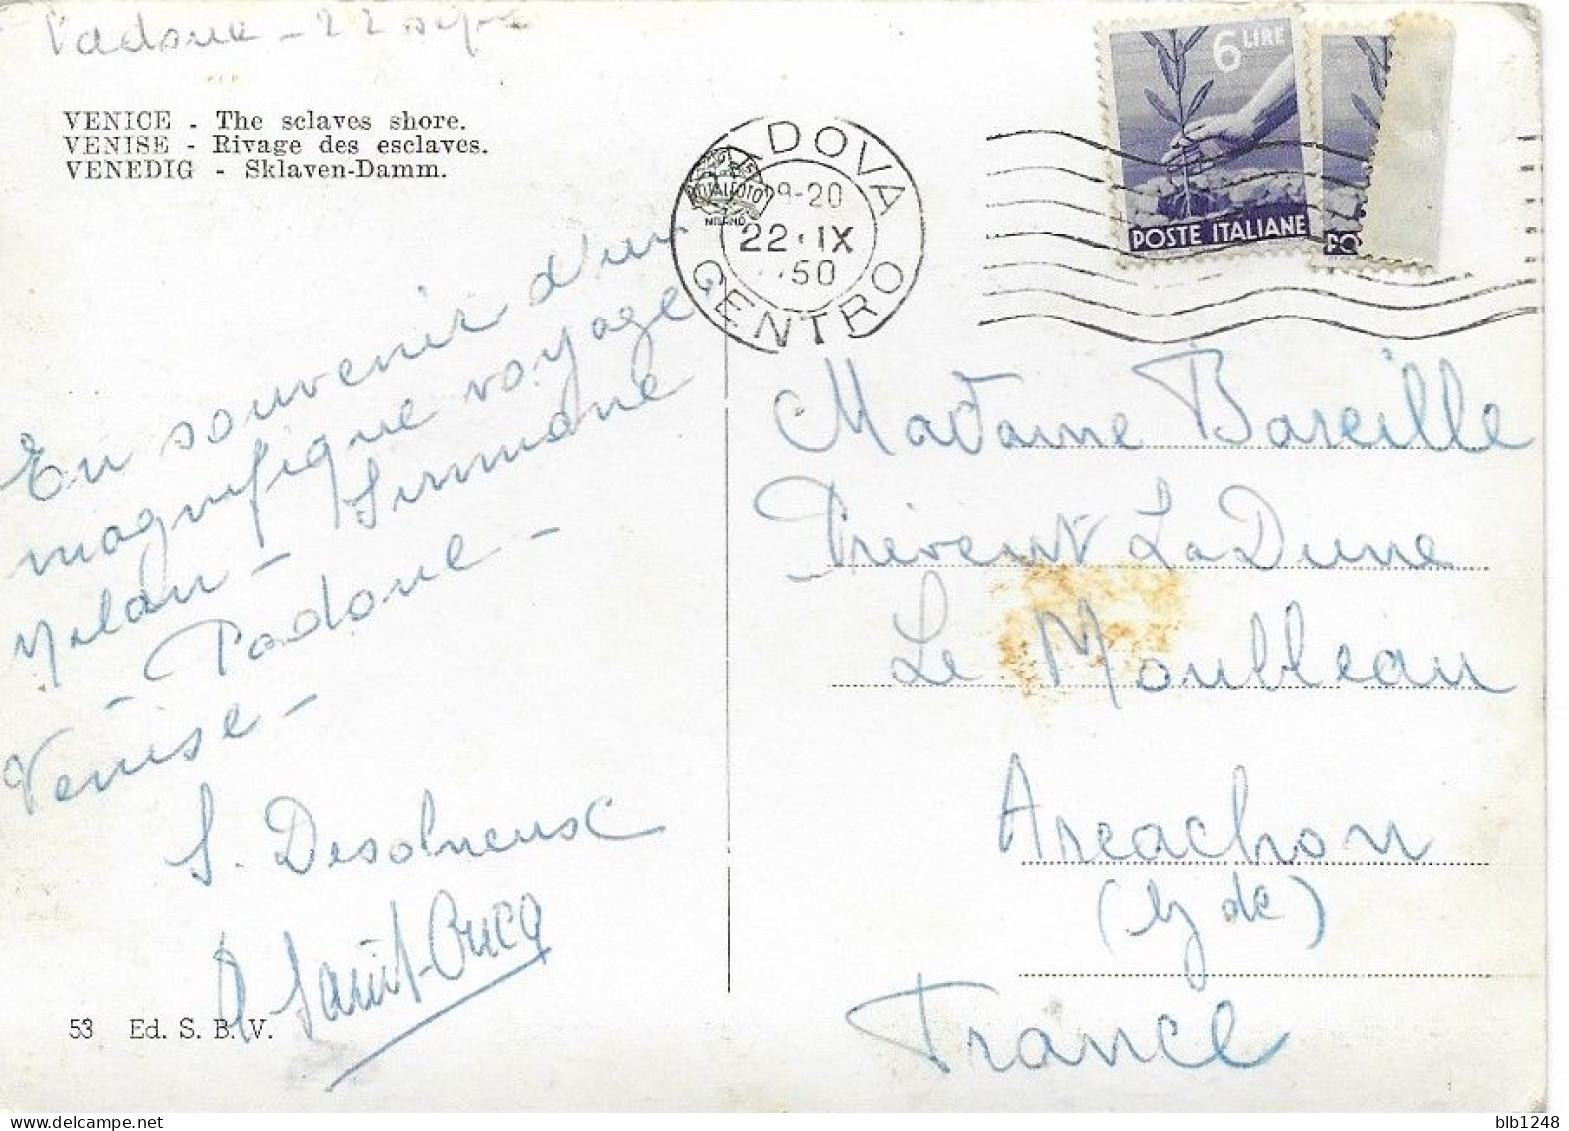 Padoue - 22 sept
VENICE - The sclaves shore.
VENISE - Rivage des esclaves.
VENEDIG - Sklaven-Damm.
6 LIRE
POSTE ITALIANE
PO
PADOVA
-20
22 · IX
50
CENTRO
MILANO
En souvenir d'un
magnifique voyage
Milan - Sirmione
- Padoue -
Venise -
S. Desolneux
Saint-Orucq
53 Ed. S. B. V.
Madame Bareille
Prévent La Dune
Le Moulleau
Arcachon
(Gde)
France
blb1248